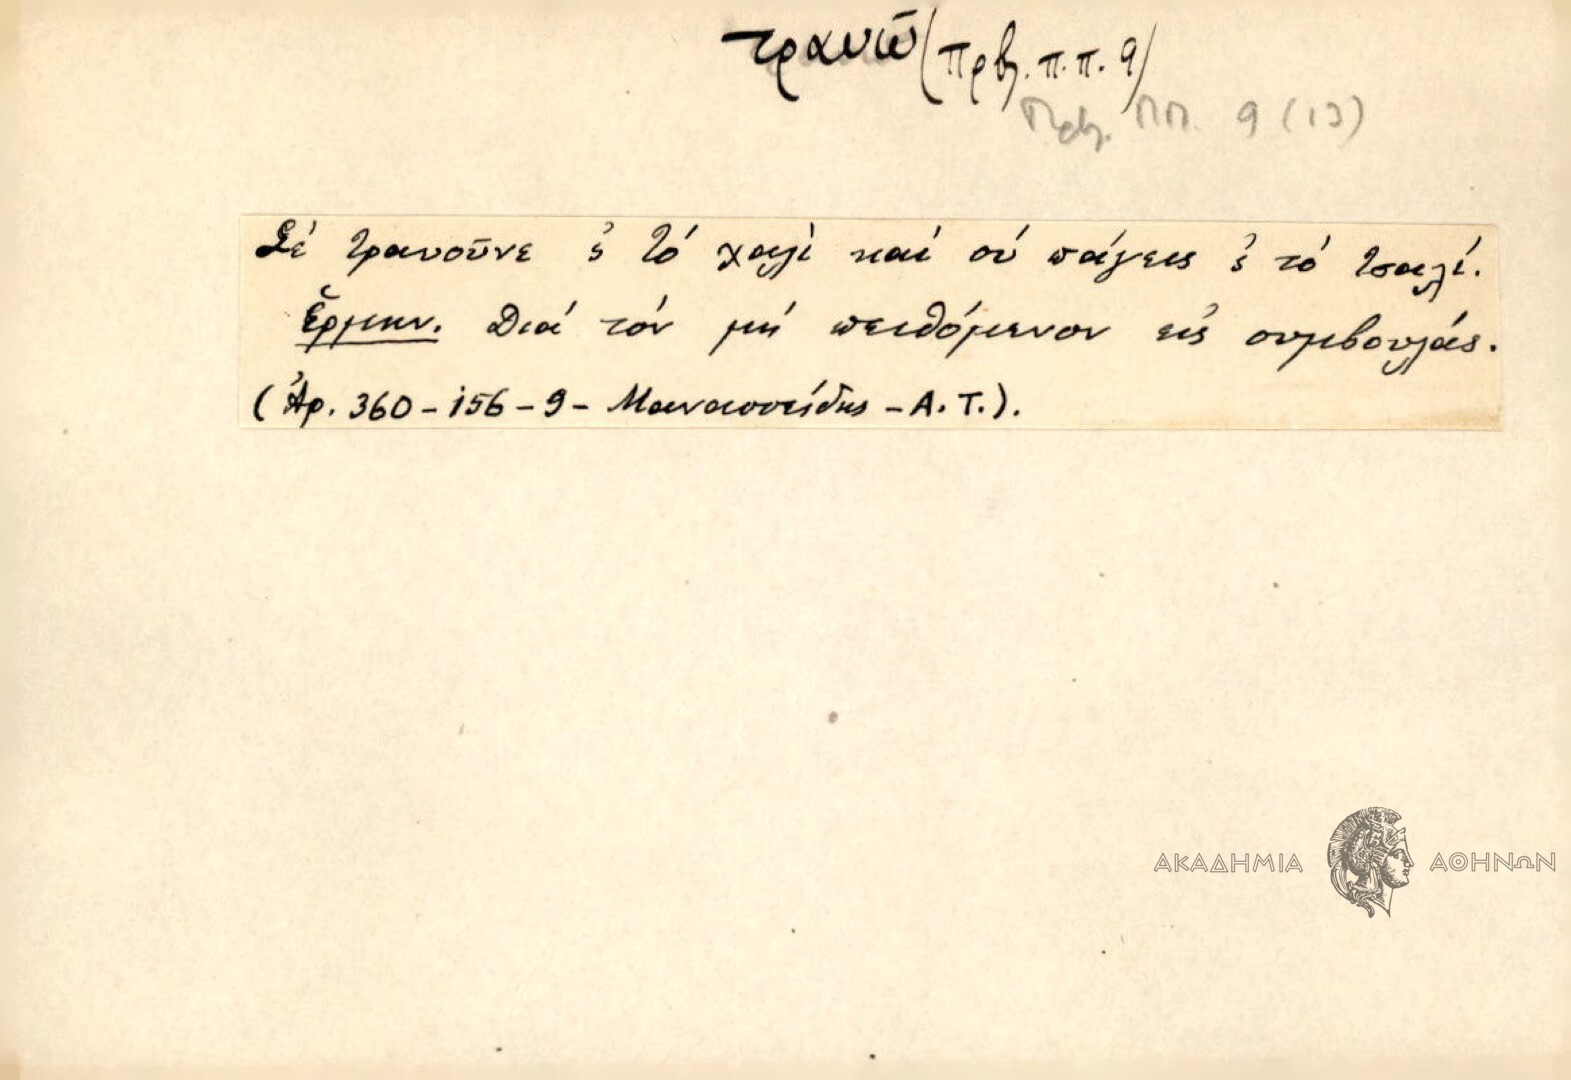 τραυῶ (Πρβ. π.π. 9)
Πρβ. ΠΠ. 9 (13)
Σέ τραυοῦνε 'ς τό χαλί καί σύ πάγεις 'ς τό τσαλί.
Ἑρμην. Διά τόν μή πειθόμενον εἰς συμβουλάς.
(Ἀρ. 360-156-9- Μαναασσείδης -Α.Τ.).
ΑΚΑΔΗΜΙΑ ΑΘΗΝΩΝ